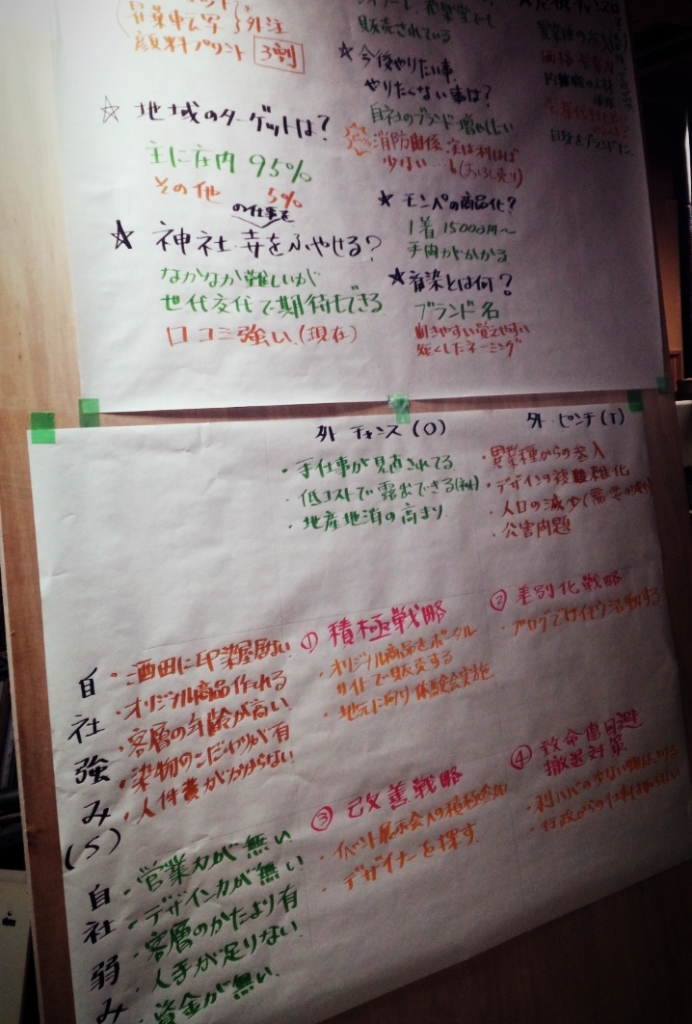 昇華中心写
外注
顔料プリント 3割
☆ 地域のターゲットは?
主に庄内 95%
その他 5%
の仕事を
☆ 神社・寺をふやせる?
なかなか難しいが
世代交代で期待もできる
口コミ強い.(現在)
販売されている
★今後やりたい事.
やりたくない事は?
自社のブランド増やしたい
消防関係.実は利はば
少ない…
★ モンペの商品化?
1着 15000円〜
手間がかかる
とは何?
ブランド名
短くしたネーミング
外 チャンス(O)
・手仕事が見直されてる
・低コストで露出できる
・地産地消の高まり
外・ピンチ(T)
・異業種からの参入
・デザインの複雑化
・人口の減少
・公害問題
自社強み(S)
・酒田に印染屋居ない
・オリジナル商品作れる
・客層の年齢が高い
・染物のこだわりが有
・人件費がかからない
① 積極戦略
・オリジナル商品をポータル
サイトで販売する
・地元に向け体験会実施
② 差別化戦略
・ブログでけイモウ活動する
自社弱み
・営業力が無い
・デザイン力が無い
・客層のかたより有
・人手が足りない
・資金が無い.
③ 改善戦略
・イベント展示会への積極参加
・デザイナーを探す.
④ 致命傷回避
撤退対策